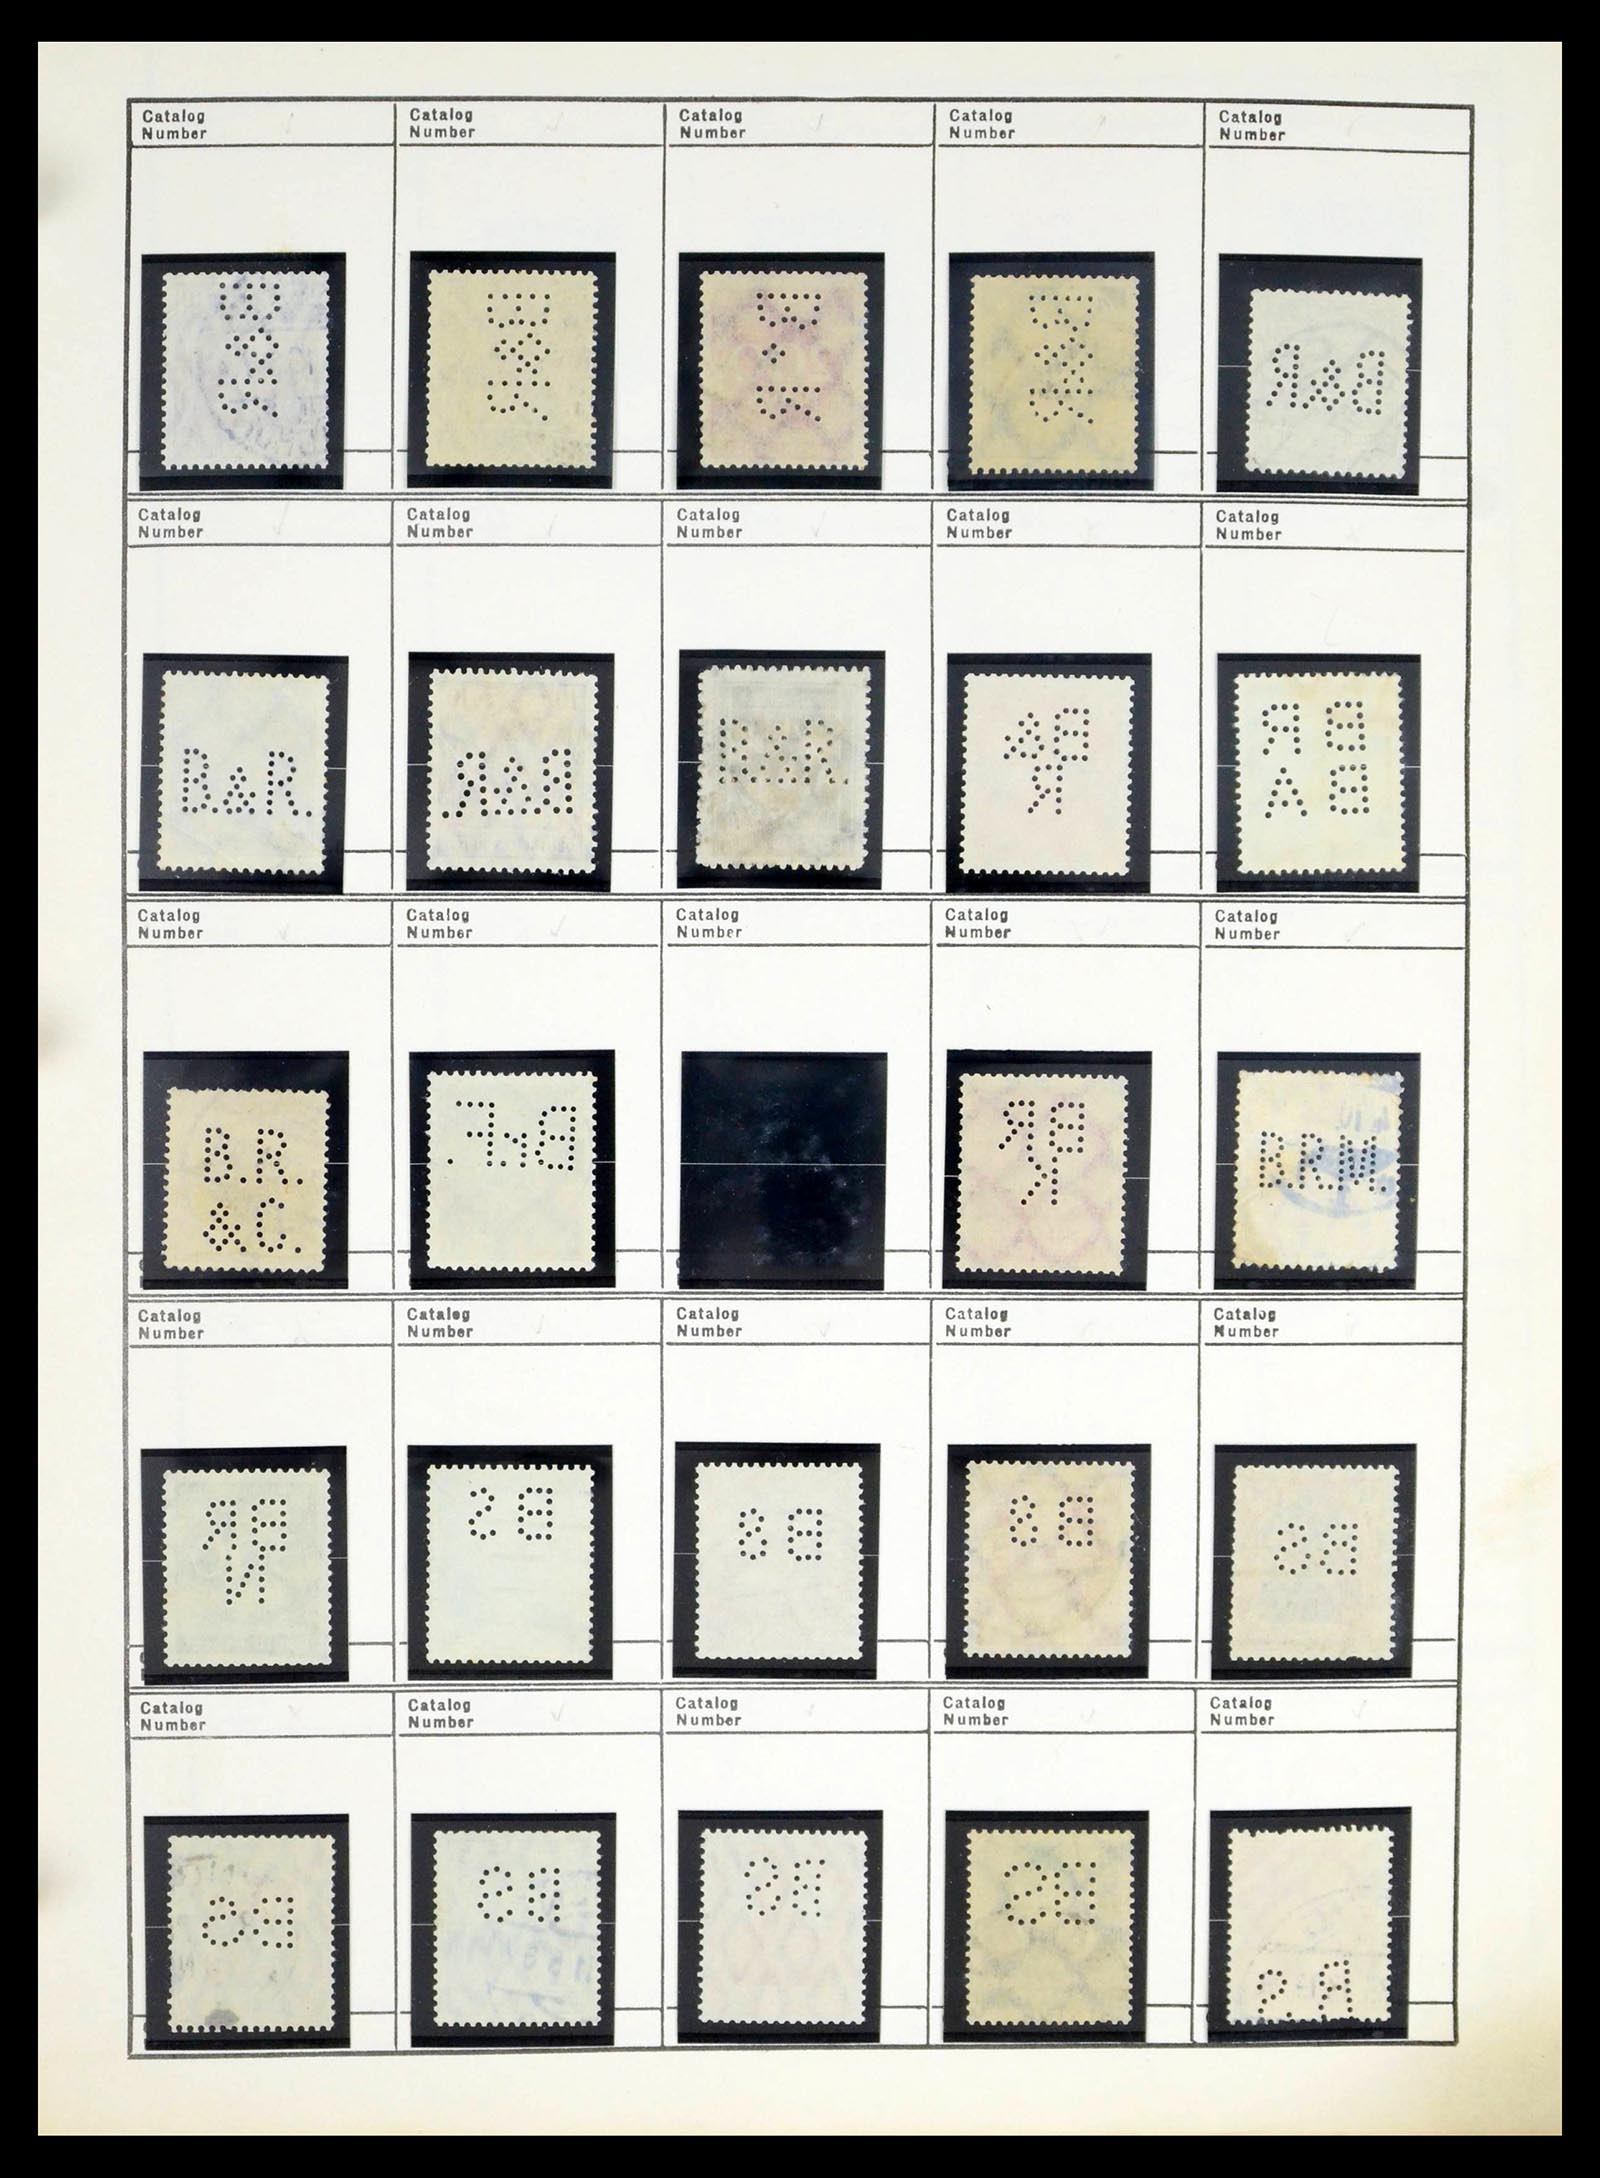 Catalog Number Catalog Number Catalog Number Catalog Number Catalog Number
B&R B&R B+R B&R B&R
Catalog Number Catalog Number Catalog Number Catalog Number Catalog Number
B&R. B&R. B&R. B&R BR BA
Catalog Number Catalog Number Catalog Number Catalog Number Catalog Number
B.R. &C. BRK B.R.M.
Catalog Number Catalog Number Catalog Number Catalog Number Catalog Number
BRN BS BS BS BS
Catalog Number Catalog Number Catalog Number Catalog Number Catalog Number
BS BS BS BS BS